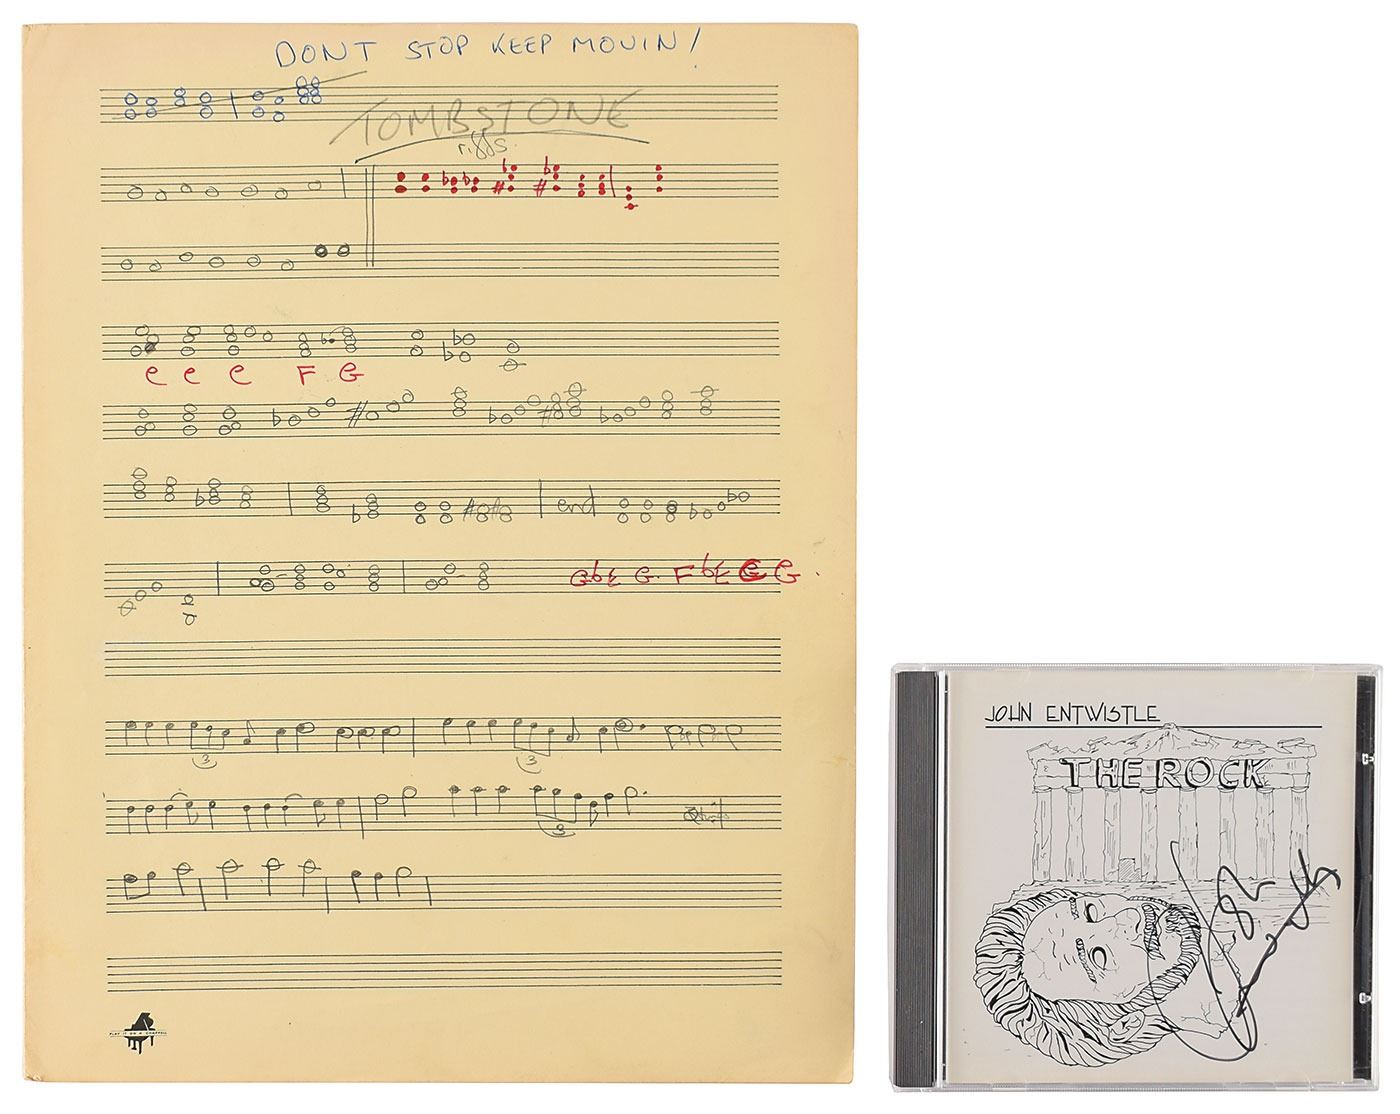 DONT STOP KEEP MOVIN!
TOMBSTONE
riffs.
e e e F G
end
G♭E G. F ♭E C G.
3 3
3
PLAY IT ON A CHAPPELL
JOHN ENTWISTLE
THE ROCK